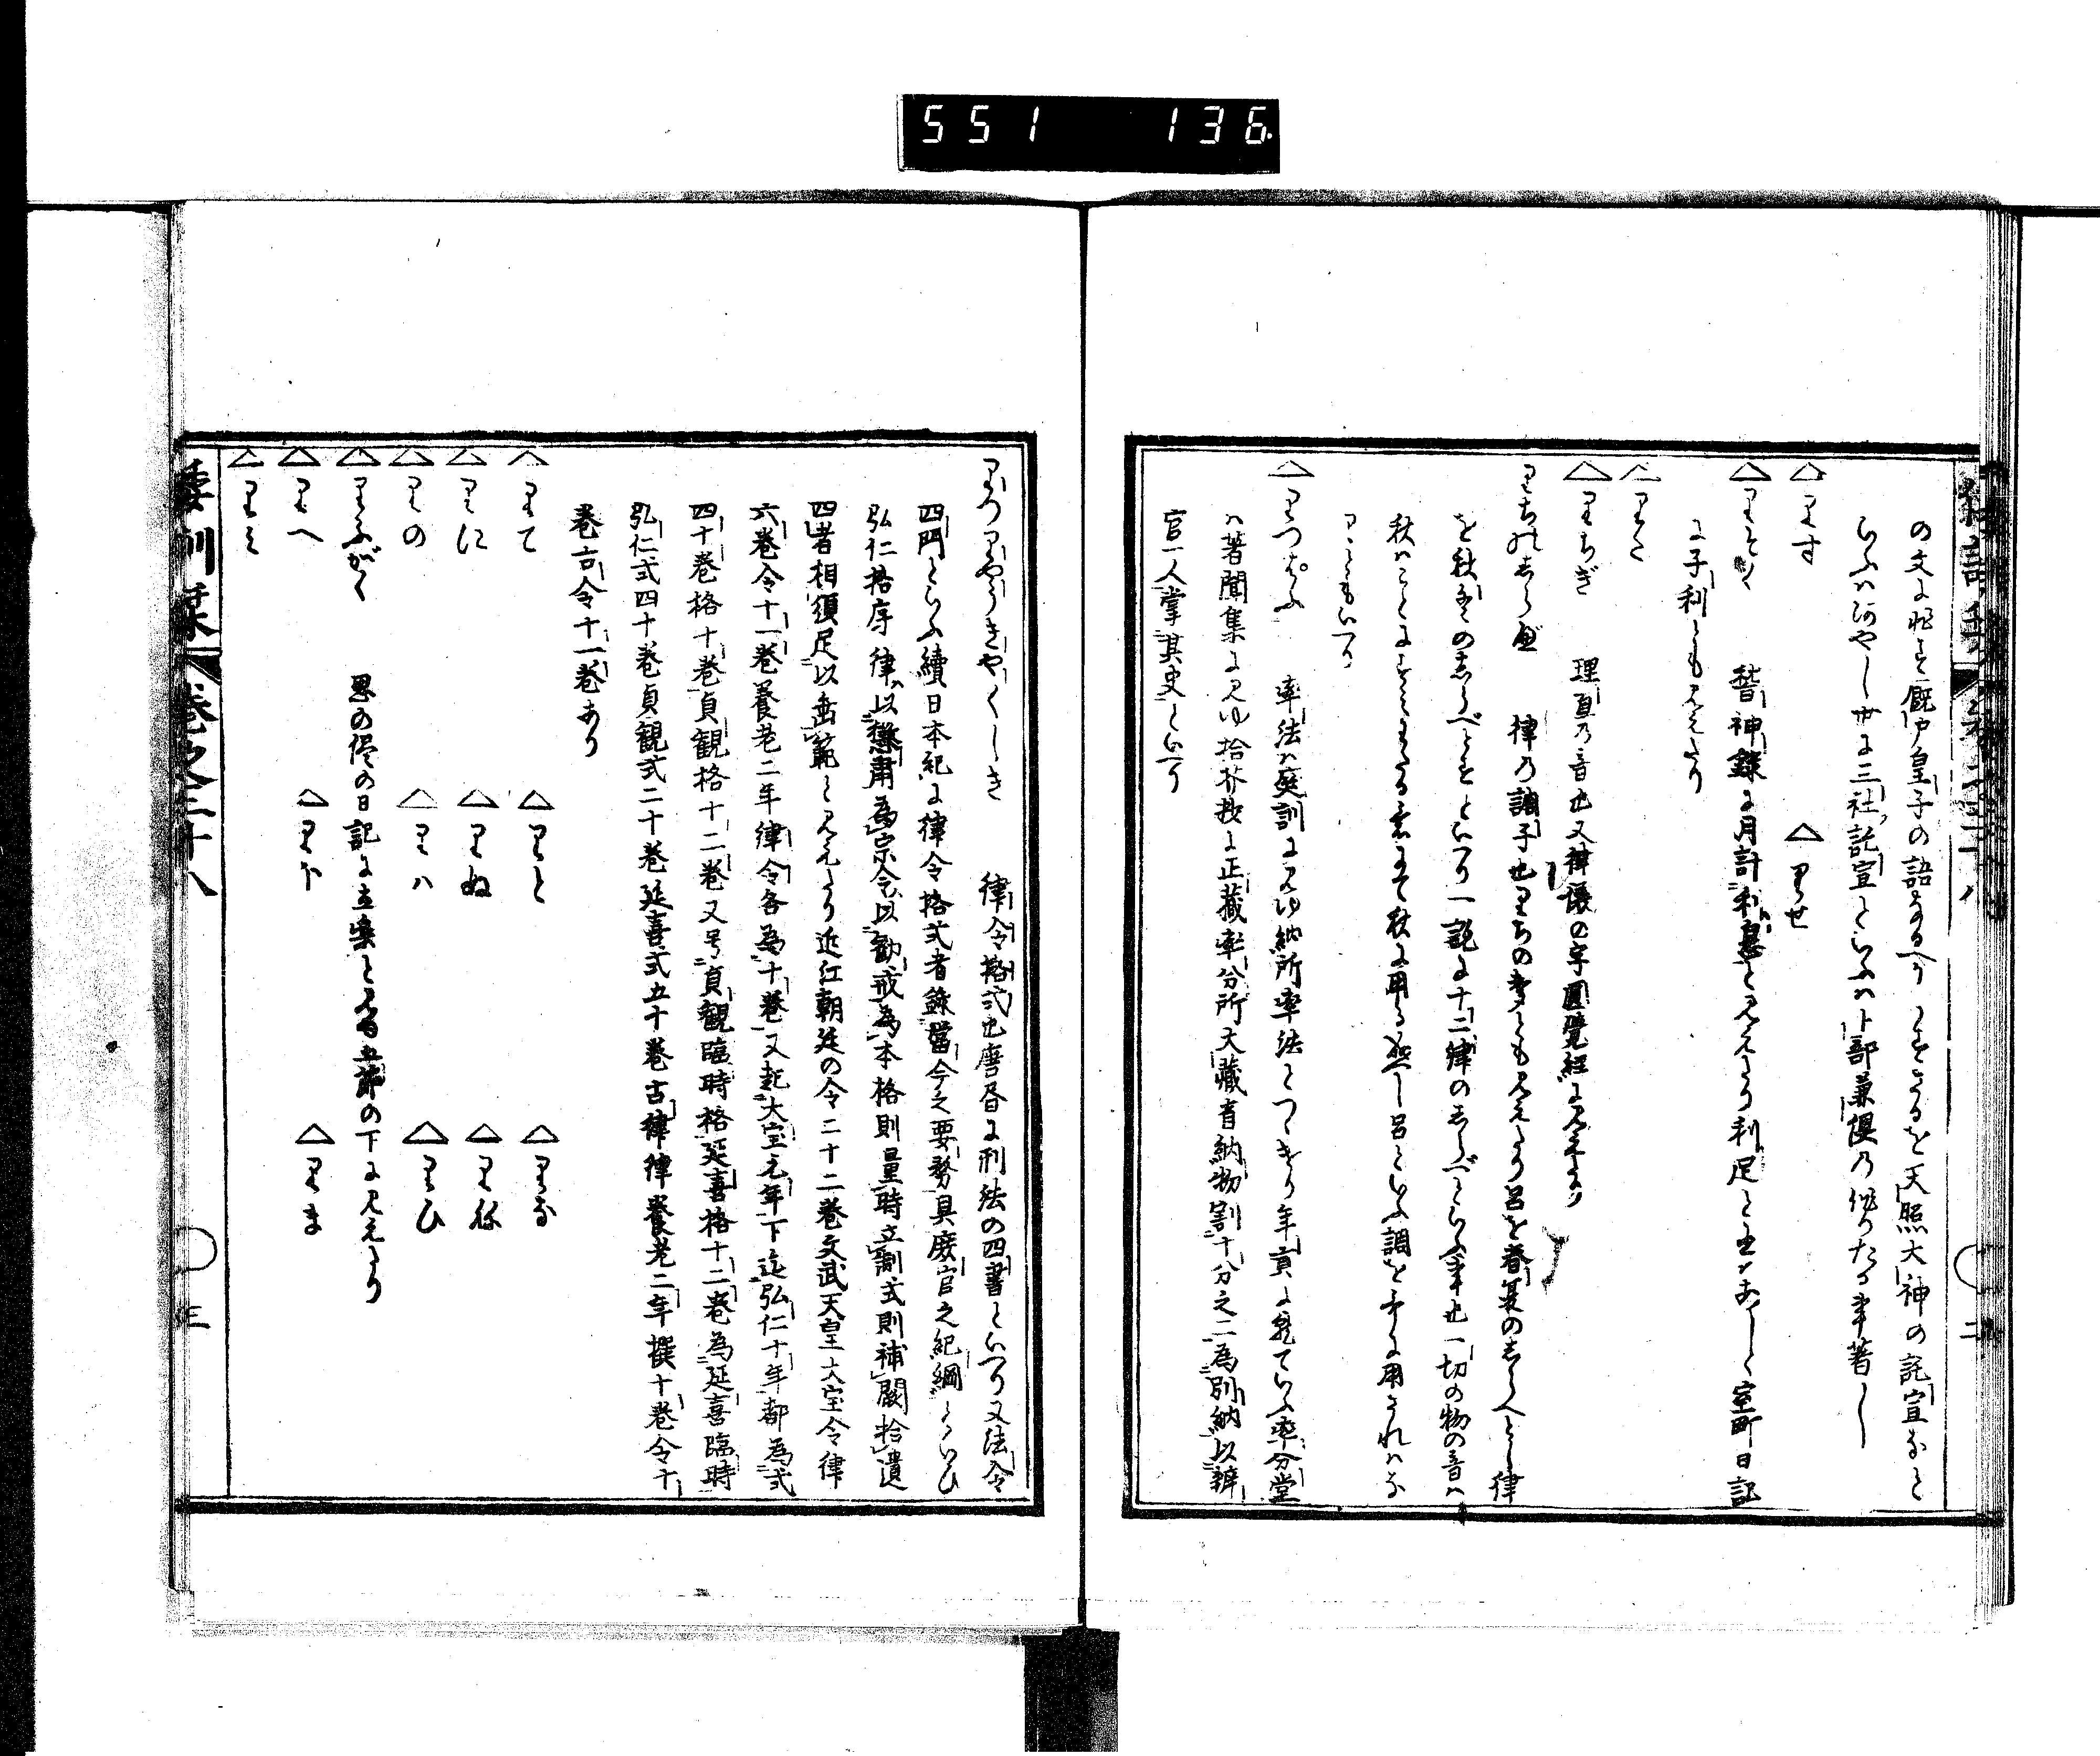 551 136
の文に非ず厩戸皇子の語なるべし しかるを天照大神の託宣なと
いふハ汚やし世に三社託宣といふハ卜部兼倶の作りたる事著し
△りす △りせ
△りそく 稽神録に月計利息と見えたり利足と書ハあしし室町日記
に子利とも見えたり
△りた
△りちぎ 理直の音也又律儀の字圓覺經に見えたり
りちのしらべ 律の調子也りちの聲とも見えたり呂を春夏のしらべとし律
を秋冬のしらべとすといへり一説に十二律のしらべといふ事也一切の物の音ハ
官一人掌其史といへり
△りつはふ 率法ハ庭訓に見ゆ納所率法とつゝけり年貢に就ていふ率分堂
ハ著聞集に見ゆ拾芥抄に正藏率分所大藏省納物割十分之二為別納以辨
りつりやうきやくしき 律令格式也唐書に刑法の四書といへり又法令
四門といふ續日本紀に律令格式者錄當今之要務具庶官之紀綱といひ
弘仁格序律以懲肅為宗令以勸戒為本格則量時立制式則補闕拾遺
四者相須足以垂範と見えたり近江朝廷の令二十二巻文武天皇大宝令律
六巻令十一巻養老二年律令各為十巻又起大宝元年下迄弘仁十年都為式
四十巻格十巻貞観格十二巻又号貞観臨時格延喜格十二巻為延喜臨時
弘仁式四十巻貞観式二十巻延喜式五十巻古律律養老二年撰十巻令十
巻古令十一巻あり
△りて △りと △りな
△りに △りぬ △りね
△りの △りハ △りひ
△りふがく 恩の侭の日記に立樂と見ゆ五節の下に見えたり
△りへ △りほ △りま
△りミ
倭訓栞 巻之三十八 三